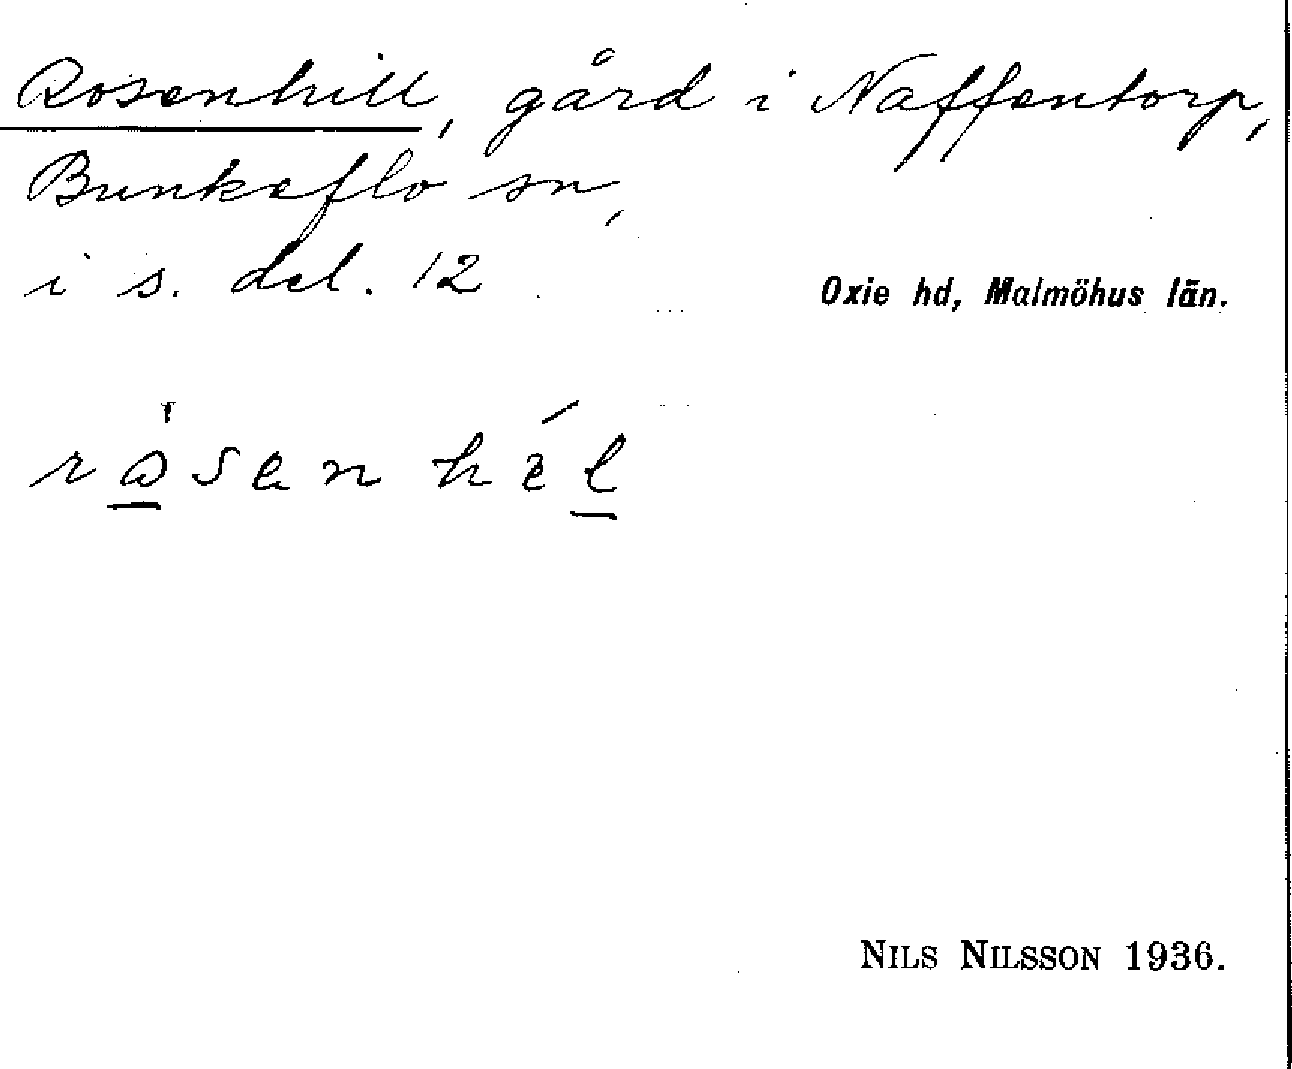 Rosenhill, gård i Naffentorp,
Bunkeflo sn,
i s. del. 12
Oxie hd, Malmöhus län.
NILS NILSSON 1936.